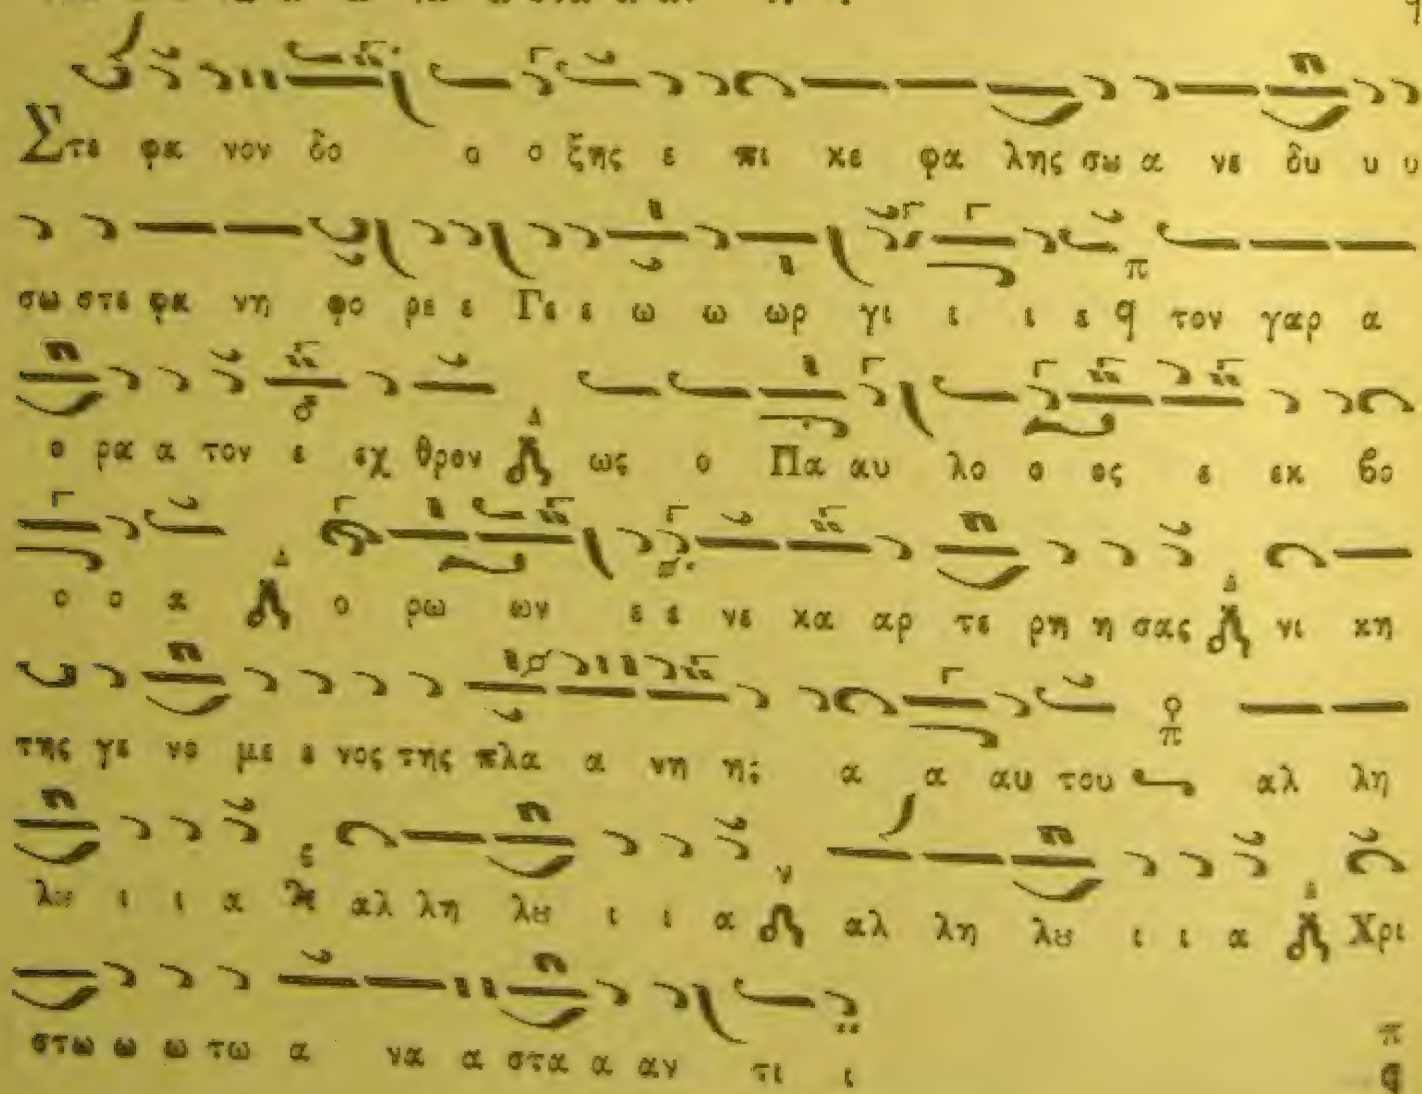 Στε φα νον δο ο ο ξης ε πι κε φα λης σω α νε δυ υ υ
π
σω στε φα νη φο ρε ε Γε ε ω ω ωρ γι ι ι ε q τον γαρ α
Δ
ο ρα α τον ε εχ θρον ως ο Πα αυ λο ο ος ε εκ βο
Δ Δ
ο ο α ο ρω ων ε ε νε κα αρ τε ρη η σας νι κη
π
της γε νο με ε νος της πλα α νη ης α α αυ του αλ λη
ς ν Δ
λȣ ι ι α αλ λη λȣ ι ι α αλ λη λȣ ι ι α Χρι
π
στω ω ω τω α να α στα α αν τι ι q